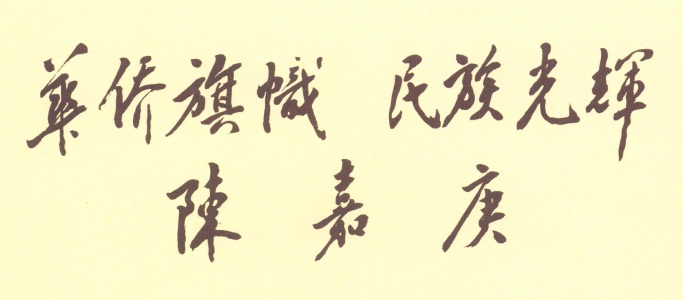 華侨旗幟 民族光輝
陳嘉庚